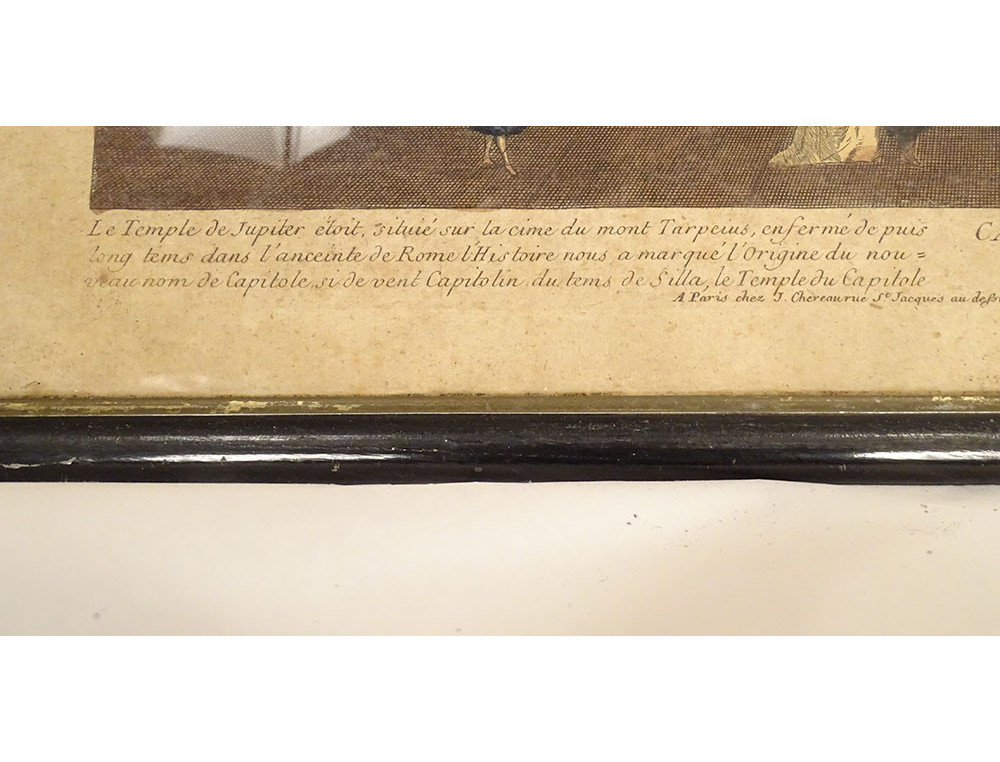 Le Temple de Jupiter étoit, situié sur la cime du mont Tarpeius, enfermé de puis
long tems dans l'anceinte de Rome l'Histoire nous a marqué l'Origine du nou=
veau nom de Capitole, si de vent Capitolin. du tems de Silla, le Temple du Capitole
CA
A Paris chez J. Chereau rue St. Jacques au dess